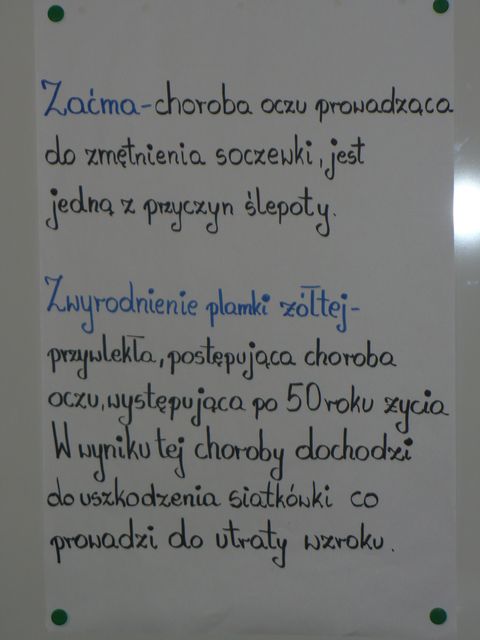 Zaćma-choroba oczu prowadząca
do zmętnienia soczewki, jest
jedną z przyczyn ślepoty.
Zwyrodnienie plamki żółtej-
przywlekła, postępująca choroba
oczu, występująca po 50 roku zycia
W wyniku tej choroby dochodzi
do uszkodzenia siatkówki co
prowadzi do utraty wzroku.